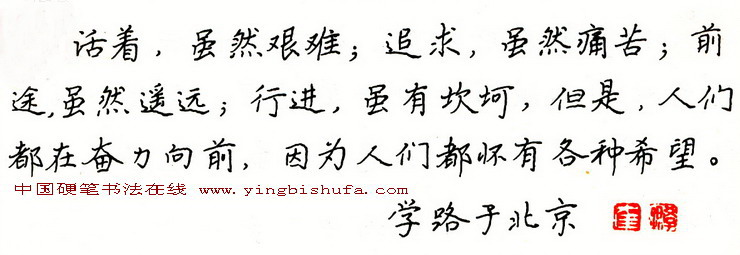 活着，虽然艰难；追求，虽然痛苦；前
途，虽然遥远；行进，虽有坎坷，但是，人们
都在奋力向前，因为人们都怀有各种希望。
中国硬笔书法在线 www.yingbishufa.com
学路于北京